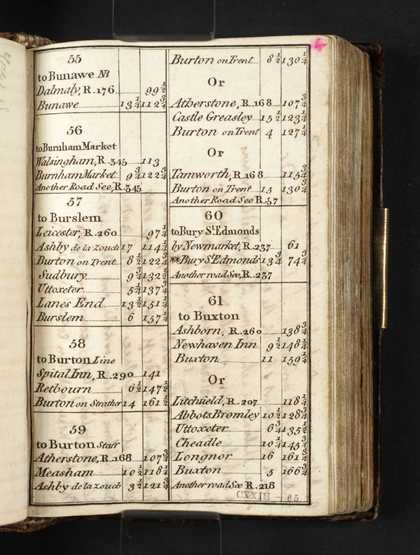 55
to Bunawe NB
Dalmaly, R.176 99½
Bunawe 13¼ 112¾
56
to Burnham Market
Walsingham, R.345 113
Burnham Market 9½ 122½
Another Road See, R.345
57
to Burslem
Leicester, R.260 97½
Ashby de la Zouch 17 114½
Burton on Trent 8½ 122¾
Sudbury 9½ 132½
Uttoxeter 5¼ 137½
Lanes End 13½ 151½
Burslem 6 157½
58
to Burton Line
Spital Inn, R.290 141
Retbourn 6½ 147½
Burton on Strather 14 161½
59
to Burton Staff
Atherstone, R.168 107¾
Measham 10½ 118¼
Ashby de la zouch 3½ 121¾
Burton on Trent 8½ 130¼
Or
Atherstone, R.168 107¾
Castle Greasley 15½ 123¼
Burton on Trent 4 127¼
Or
Tamworth, R.168 115¼
Burton on Trent 15 130¼
Another Road See R.57
60
to Bury St. Edmonds
by Newmarket, R.237 61
Bury St. Edmonds 13¾ 74¾
Another road See, R.237
61
to Buxton
Ashborn, R.260 138¾
Newhaven Inn 9½ 148¼
Buxton 11 159¼
Or
Litchfield, R.207 118¼
Abbots Bromley 10½ 128¾
Uttoxeter 6¾ 135½
Cheadle 10¼ 145¾
Longnor 16 161¾
Buxton 5 166¾
Another road See R.218